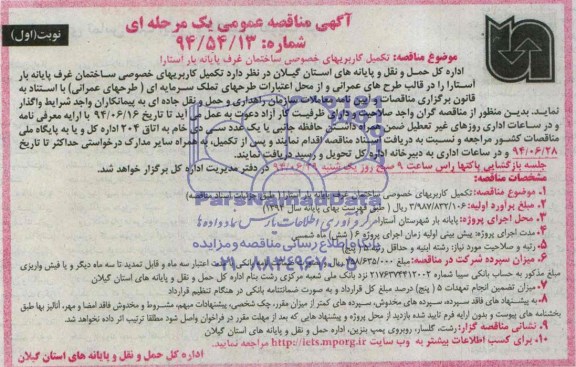 آگهی مناقصه عمومی یک مرحله ای
نوبت (اول)
شماره: ۹۴/۵۴/۱۳
موضوع مناقصه: تکمیل کاربریهای خصوصی ساختمان غرف پایانه بار آستارا
اداره کل حمل و نقل و پایانه های استان گیلان در نظر دارد تکمیل کاربریهای خصوصی ساختمان غرف پایانه بار
آستارا را در قالب طرح های عمرانی و از محل اعتبارات طرحهای تملک سرمایه ای (طرحهای عمرانی) با استناد به
قانون برگزاری مناقصات و آیین نامه معاملات سازمان راهداری و حمل و نقل جاده ای به پیمانکاران واجد شرایط واگذار
نماید. بدین منظور از مناقصه گران واجد صلاحیت و دارای ظرفیت کار آزاد دعوت به عمل می آید تا تاریخ ۹۴/۰۶/۱۶ با ارایه معرفی نامه
و در ساعات اداری روزهای غیر تعطیل ضمن همراه داشتن حافظه جانبی یا یک عدد سی دی خام به اتاق ۲۰۴ اداره کل و یا به پایگاه ملی
مناقصات کشور مراجعه و نسبت به دریافت اسناد مناقصه اقدام نمایند و پس از تکمیل، به همراه سایر مدارک درخواستی حداکثر تا تاریخ
۹۴/۰۶/۲۸ و در ساعات اداری به دبیرخانه اداره کل تحویل و رسید دریافت نمایند.
جلسه بازگشایی پاکتها راس ساعت ۹ صبح روز یک شنبه ۹۴/۰۶/۲۹ در دفتر مدیریت اداره کل برگزار خواهد شد.
مشخصات مناقصه:
۱. موضوع مناقصه: تکمیل کاربریهای خصوصی ساختمان غرف پایانه بار آستارا (طبق اسناد مناقصه)
۲. مبلغ برآورد اولیه: ۳/۹۸۷/۸۳۲/۱۰۶ ریال (طبق فهرست بهای پایه سال ۱۳۹۴)
۳. محل اجرای پروژه: پایانه بار شهرستان آستارا
۴. مدت اجرای پروژه: پیش بینی اولیه زمان اجرای پروژه ۶ (شش) ماه شمسی
۵. رتبه و صلاحیت مورد نیاز: رشته ابنیه و حداقل رتبه ۵ (پنج)
۶. میزان سپرده شرکت در مناقصه: مبلغ ریال بانکی اعتبار سه ماه و قابل تمدید تا سه ماه دیگر و یا فیش واریزی
مبلغ مذکور به حساب بانکی سیبا شماره ۲۱۷۶۳۷۴۴۱۲۰۰۲ نزد بانک ملی شعبه مرکزی رشت بنام اداره کل حمل و نقل و پایانه های استان گیلان
۷. میزان تضمین انجام تعهدات ۵ (پنج) درصد مبلغ کل قرارداد و به صورت ضمانتنامه بانکی در هنگام تنظیم قرارداد
۸. به پیشنهادهای فاقد سپرده، سپرده های مخدوش، سپرده های کمتر از میزان مقرر، چک شخصی، پیشنهادات مبهم، مشروط و مخدوش فاقد امضا و مهر، آنالیز بها طبق
بخشنامه های پیوست و بدون ارایه فرم تایید شده بازدید از محل پروژه و پیشنهاد هایی که بعد از مهلت مقرر در فراخوان واصل شود مطلقا ترتیب اثر داده نخواهد شد.
۹. نشانی مناقصه گزار: رشت، گلسار، روبروی پمپ بنزین، اداره حمل و نقل و پایانه های استان گیلان
۱۰. برای کسب اطلاعات بیشتر به وب سایت http://iets.mporg.ir مراجعه نمایید.
اداره کل حمل و نقل و پایانه های استان گیلان
ParsNamadData
گردآوری اطلاعات پارس نماد داده ها
پایگاه اطلاع رسانی مناقصه و مزایده
۰۲۱-۸۸۳۴۹۶۷۰-۵